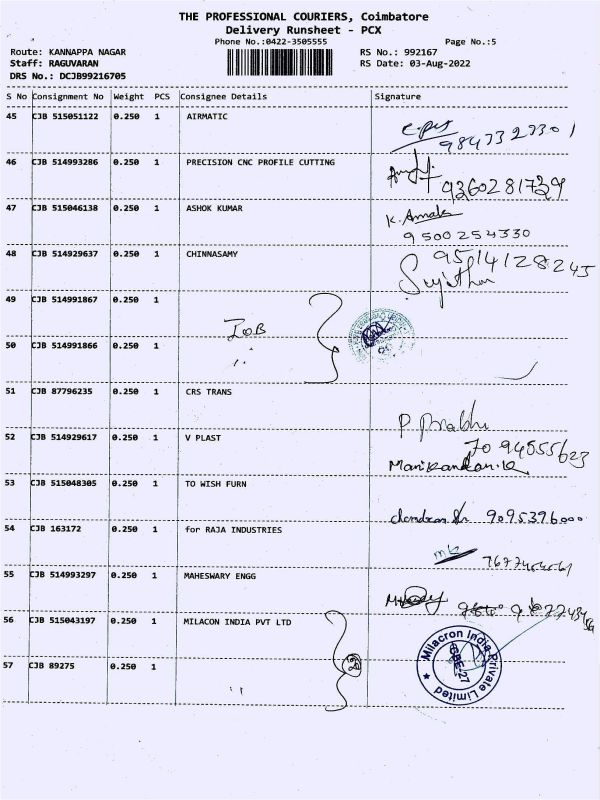 THE PROFESSIONAL COURIERS, Coimbatore
Delivery Runsheet - PCX
Phone No.:0422-3505555 Page No.:5
Route: KANNAPPA NAGAR RS No.: 992167
Staff: RAGUVARAN RS Date: 03-Aug-2022
DRS No.: DCJB99216705
S No Consignment No Weight PCS Consignee Details Signature
45 CJB 515051122 0.250 1 AIRMATIC
9847327301
46 CJB 514993286 0.250 1 PRECISION CNC PROFILE CUTTING
47 CJB 515046138 0.250 1 ASHOK KUMAR K. Amala
9500254330
48 CJB 514929637 0.250 1 CHINNASAMY 9514128245
Sujatha
49 CJB 514991867 0.250 1
IOB
50 CJB 514991866 0.250 1
51 CJB 87796235 0.250 1 CRS TRANS
P Prabhu
52 CJB 514929617 0.250 1 V PLAST 7094555623
Manikandan.K
53 CJB 515048305 0.250 1 TO WISH FURN
9095396000
54 CJB 163172 0.250 1 for RAJA INDUSTRIES
55 CJB 514993297 0.250 1 MAHESWARY ENGG
56 CJB 515043197 0.250 1 MILACON INDIA PVT LTD
Milacron India Private Limited
CBE-27
57 CJB 89275 0.250 1